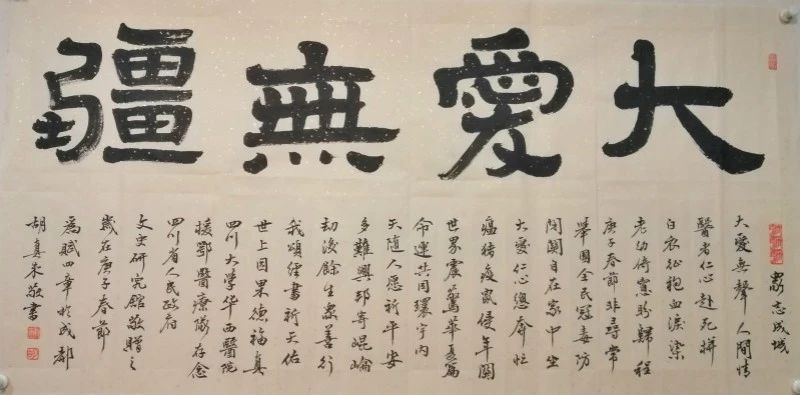 大愛無疆
眾志成城
大愛無聲人間情
醫者仁心赴死拼
白衣征袍血淚染
老幼倚窗盼歸程
庚子春節非尋常
舉國全民冠毒防
閉關自在家中坐
大愛仁心總奔忙
瘟豬疫鼠侵年關
世界震驚華夏篇
命運共同環宇内
天隨人愿祈平安
多難興邦寄崐崘
劫後餘生眾善行
我頌經書祈天佑
世上因果德福真
四川大学华西醫院
援鄂醫療隊存念
四川省人民政府
文史研究館敬贈之
歲在庚子春節
為賦四章於成都
胡真来敬書